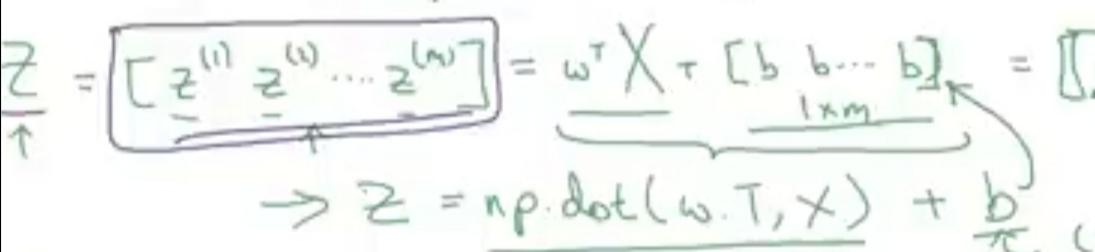 Z = [ z^(1) z^(2) .... z^(m) ] = w^T X + [b b... b] = [
1xm
→ Z = np.dot(w.T, X) + b (